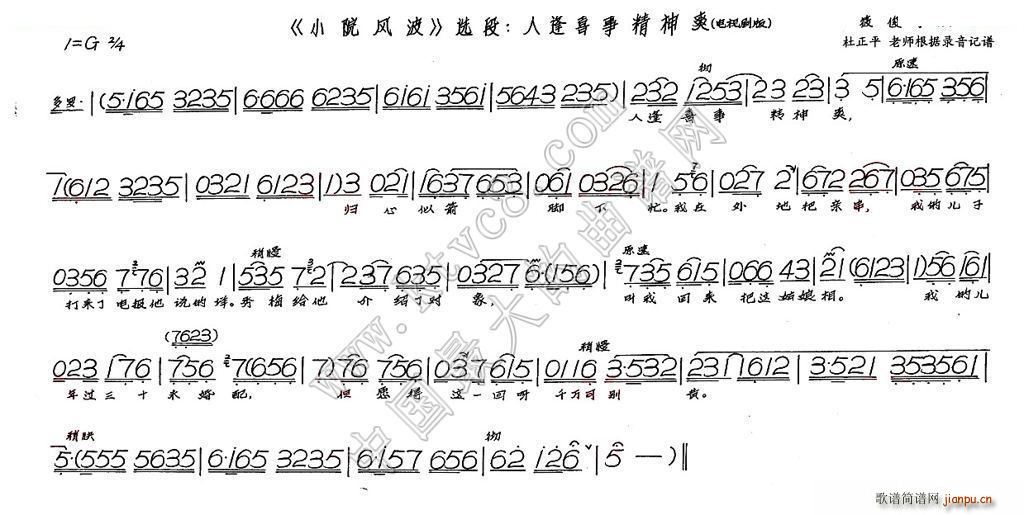 《小院风波》选段：人逢喜事精神爽(电视剧版)
1=G 2/4
杜正平 老师根据录音记谱
多罗·|(5·i65 3235|6·666 6235|6i6i 356i|5643 235)|232 i253|23 23|3 5|6·i65 356|
人逢 喜事 精神 爽,
7(612 3235|0321 6123|1)3 021|1637 653|061 0326|1 56|027 2|672 267|035 675|
归心似箭 脚下忙。我在外地把亲串,我的儿子
稍慢 原速
0356 7776|32 1|535 72|237 635|0327 6·(156)|735 615|066 43|21 (6123|1)56 161|
打来了电报他说的详。秀梅给他介绍了对象,叫我回来把这姑娘相。我的儿
(7623)
稍慢
023 176|756 7(656|7)76 276|037 615|0116 3·532|231 1612|3·521 3535561|
年过三十未婚配,但愿得这一回呀千万可别黄。
稍快 彻
5·(555 5635|6·i65 3235|6·i57 656|62 i26|5 —)‖
www.ktvc8.com
中国最大的曲谱网
歌谱简谱网
jianpu.cn